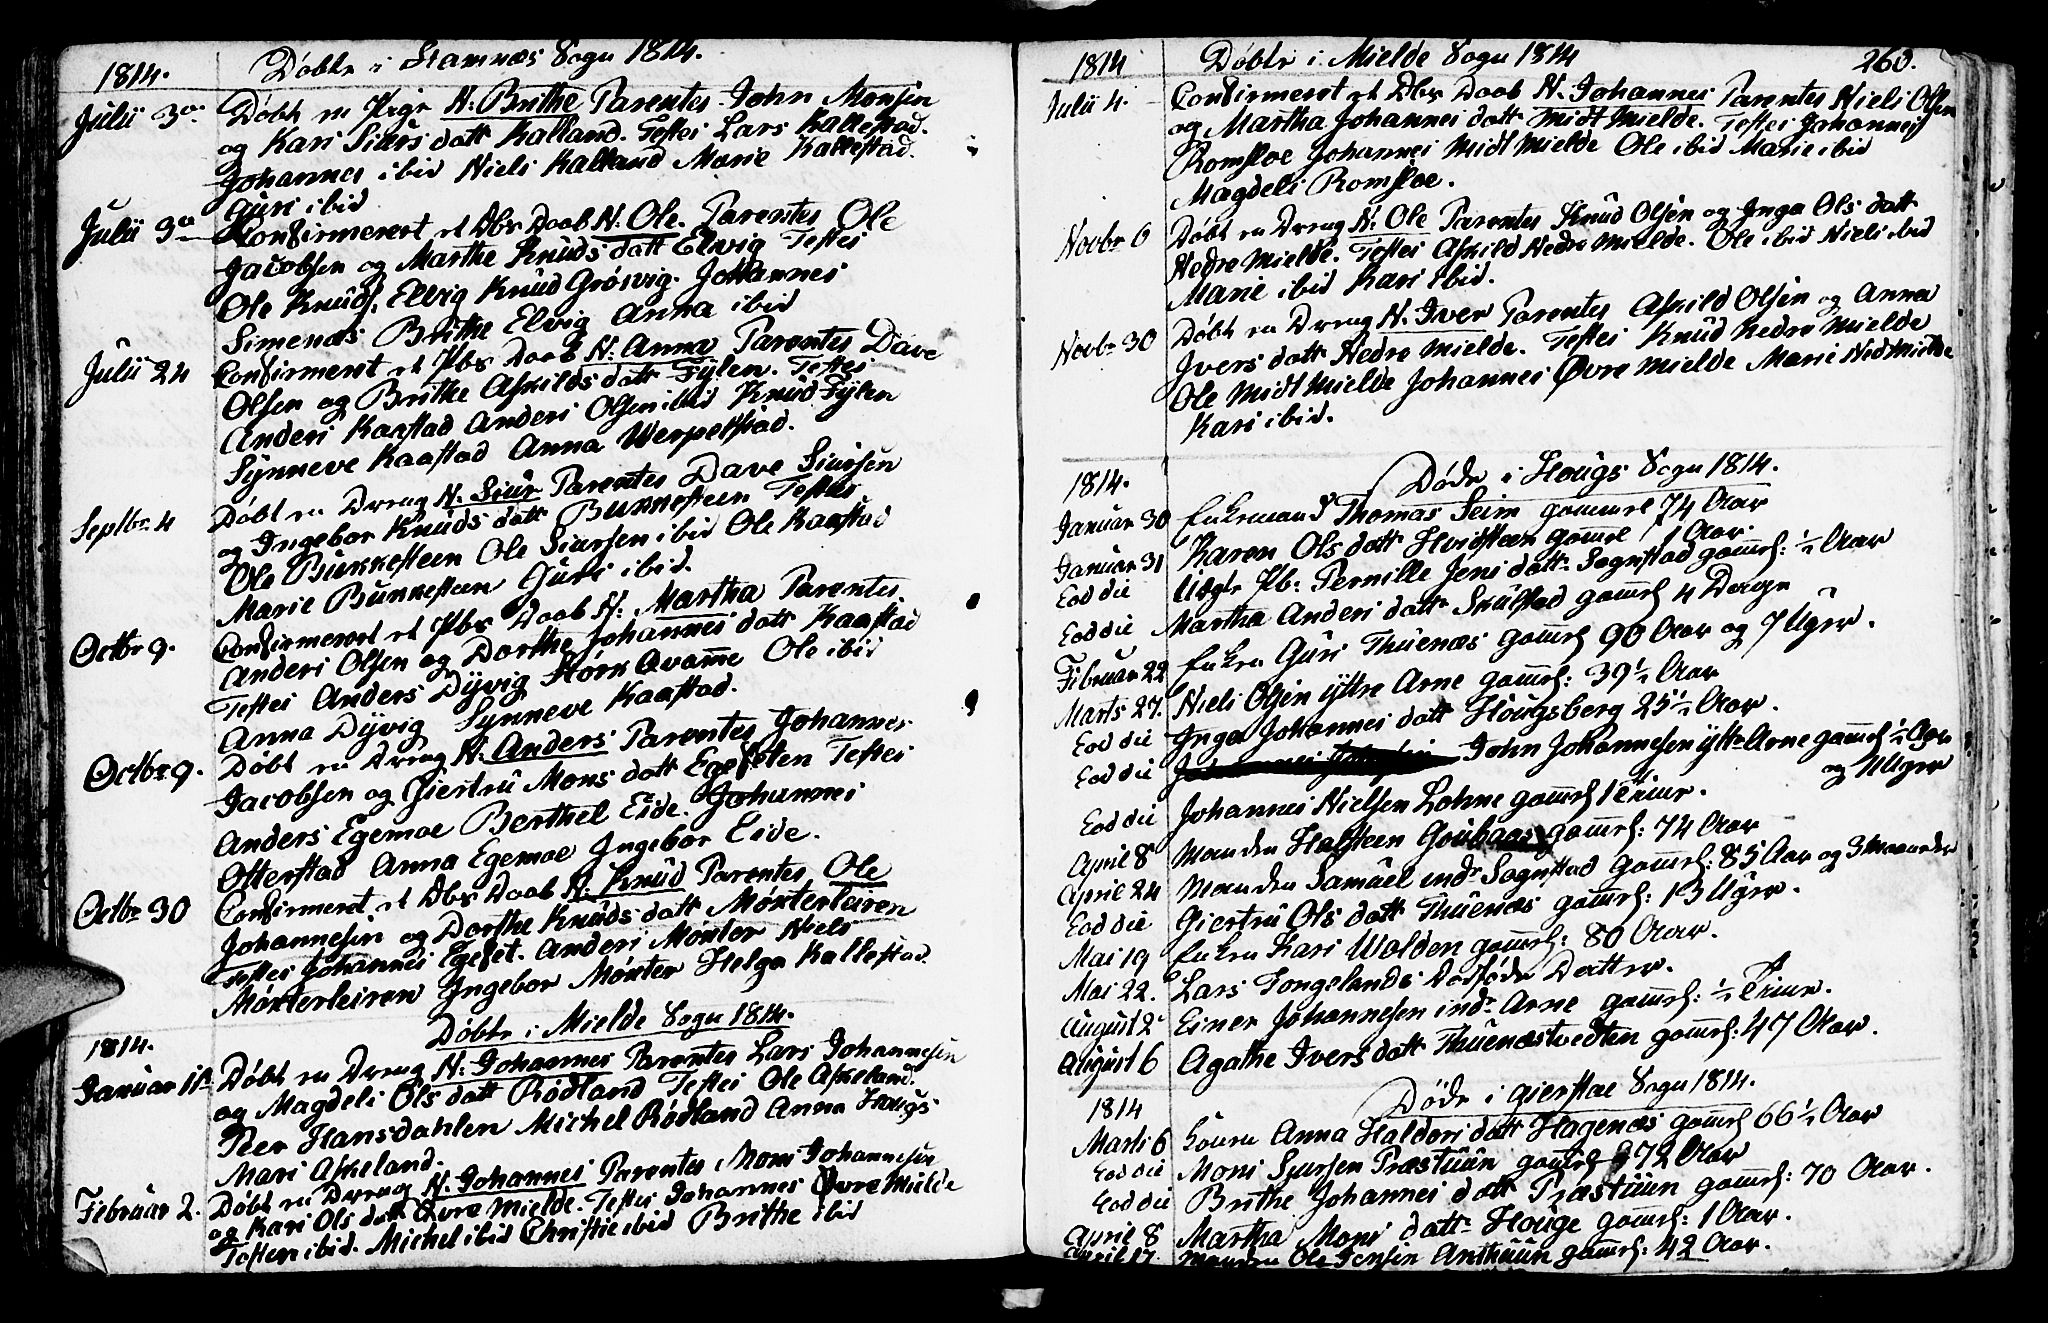 1814. Døbte i Stamnæs Sogn 1814.
Julii 3de Døbt en Pige N: Brithe Parentes John Monsen
og Kari Siurs datt Kalland. Testes Lars Kallestad.
Johannes ibid Niels Kalland Marie Kallestad.
Guri ibid
Julii 3de Confirmeret et Dbs Daab N: Ole. Parentes Ole
Jacobsen og Marthe Knuds datt Elvig Testes
Ole Knuds: Elvig Knud Grøsvig. Johannes
Simenæs Brithe Elvig Anna ibid
Julii 24 Confirmeret et Pbs Daab N: Anna Parentes Dave
Olsen og Brithe Askilds datt Fylen. Testes
Anders Kaastad Anders Olsen ibid Knud Fylen
Synneve Kaastad Anna Werpelstad.
Septbr 4 Døbt en Dreng N: Siur Parentes Dave Siursen
og Ingebor Knuds datt Bukkesteen Testes
Ole Bukkesteen Ole Siursen ibid Ole Kaastad
Marie Bukkesteen Guri ibid.
Octbr 9. Confirmeret et Pbs Daab N: Martha Parentes
Anders Olsen og Dorthe Johannes datt Kaastad
Testes Anders Dyvig Størk Qvamme Ole ibid
Anna Dyvig Synneve Kaastad.
Octbr 9. Døbt en Dreng N: Anders Parentes Johannes
Jacobsen og Giertru Mons datt Egeseten Testes
Anders Egemoe Berthel Eide. Johannes
Otterstad Anna Egemoe Ingebor Eide.
Octbr 30 Confirmeret et Dbs Daab N: Knud Parentes Ole
Johannesen og Dorthe Knuds datt Møxterleiren
Testes Johannes Egeset. Anders Møxter Niels
Møxterleiren Ingebor Møxter Helga Kallestad
1814. Døbte i Mielde Sogn 1814.
Januar Døbt en Dreng N: Johannes Parentes Lars Johannesen
og Magdeli Ols datt Rødland Testes Ole Askeland.
Peer Hansdahlen Michel Rødland Anna Hougs
Mari Askeland.
Februar 2. Døbt en Dreng N. Johannes Parentes Mons Johannesen
og Kari Ols datt Øvre Mielde. Testes Johannes Øvre Mielde
Tosten ibid. Michel ibid Christie ibid Brithe ibid
1814 Døbte i Mielde Sogn 1814 260.
Julii 4. Confirmeret et Dbs Daab N. Johannes Parentes Niels Olsen
og Martha Johannes datt Midt Mielde. Testes Johannes
Romsloe Johannes Midt Mielde Ole ibid Marie ibid
Magdeli Romsloe.
Novbr 6 Døbt en Dreng N. Ole Parentes Knud Olsen og Inga Ols datt
Nedre Mielde. Testes Askild Nedre Mielde. Ole ibid Niels ibid
Marie ibid Kari ibid.
Novbr 30 Døbt en Dreng N. Iver Parentes Askild Olsen og Anna
Ivers datt Nedre Mielde. Testes Knud Nedre Mielde
Ole Midt Mielde Johannes Øvre Mielde Marie Ned Mielde
Kari ibid.
1814. Døde i Hougs Sogn 1814.
Januar 30 Enkemand Thomas Seim gammel 74 Aar
Januar 31 Karen Ols datt Hvidsteen gammel 1 Aar.
Eod die Uægte Pb: Pernille Jens datt: Sognstad gammel: ½ Aar
Eod die Martha Anders datt Skulstad gammel 4 Dage
Februar 22 Enken Guri Thuenæs gammel 90 Aar og 7 Uger.
Marts 27. Niels Olsen yttre Arne gammel: 39½ Aar
Eod die Inga Johannes datt Hougsberg 25½ Aar.
Eod die John Johannesen ytt: Arne gammel ½ Aar
og Uger
Eod die Johannes Nielsen Lohne gammel 1 Time.
April 8 Manden Halsteen gammel: 74 Aar
April 24 Manden Samuel indr Sognstad gammel: 85 Aar og 3 Maaneder
Eod die Giertru Ols datt Thuenæs gammel: 13 Uger.
Mai 19 Enken Kari Walden gammel: 80 Aar.
Mai 22. Lars Tongelands Dødfødte Datter.
August 2 Einer Johannesen indr Arne gammel: ½ Time.
August 6 Agathe Ivers datt Thuenæstvedten gammel: 47 Aar.
1814 Døde i Gierstae Sogn 1814.
Marts 6 Konen Anna Haldors datt Hagenæs gammel 66½ Aar
Eod die Mons Sjursen Præstuun gammel 72 Aar
Eod die Brithe Johannes datt Præstuun gammel: 70 Aar.
April 8 Martha Mons datt Houge gammel: 1 Aar.
April 17. Manden Ole Jensen Anthuun gammel: 42 Aar.